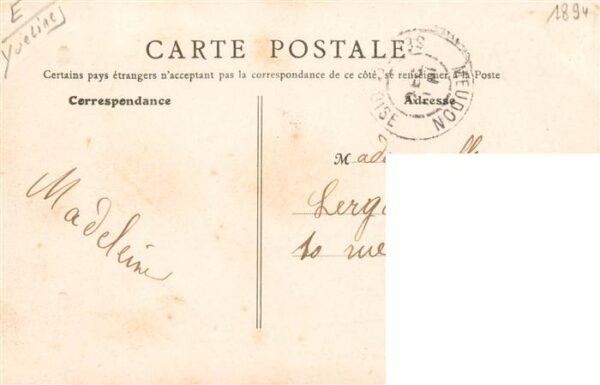 E
Yveline
1894
CARTE POSTALE
Certains pays étrangers n'acceptant pas la correspondance de ce côté, se renseigner à la Poste
Correspondance
Adresse
MEUDON
OISE
Madeleine
10 rue